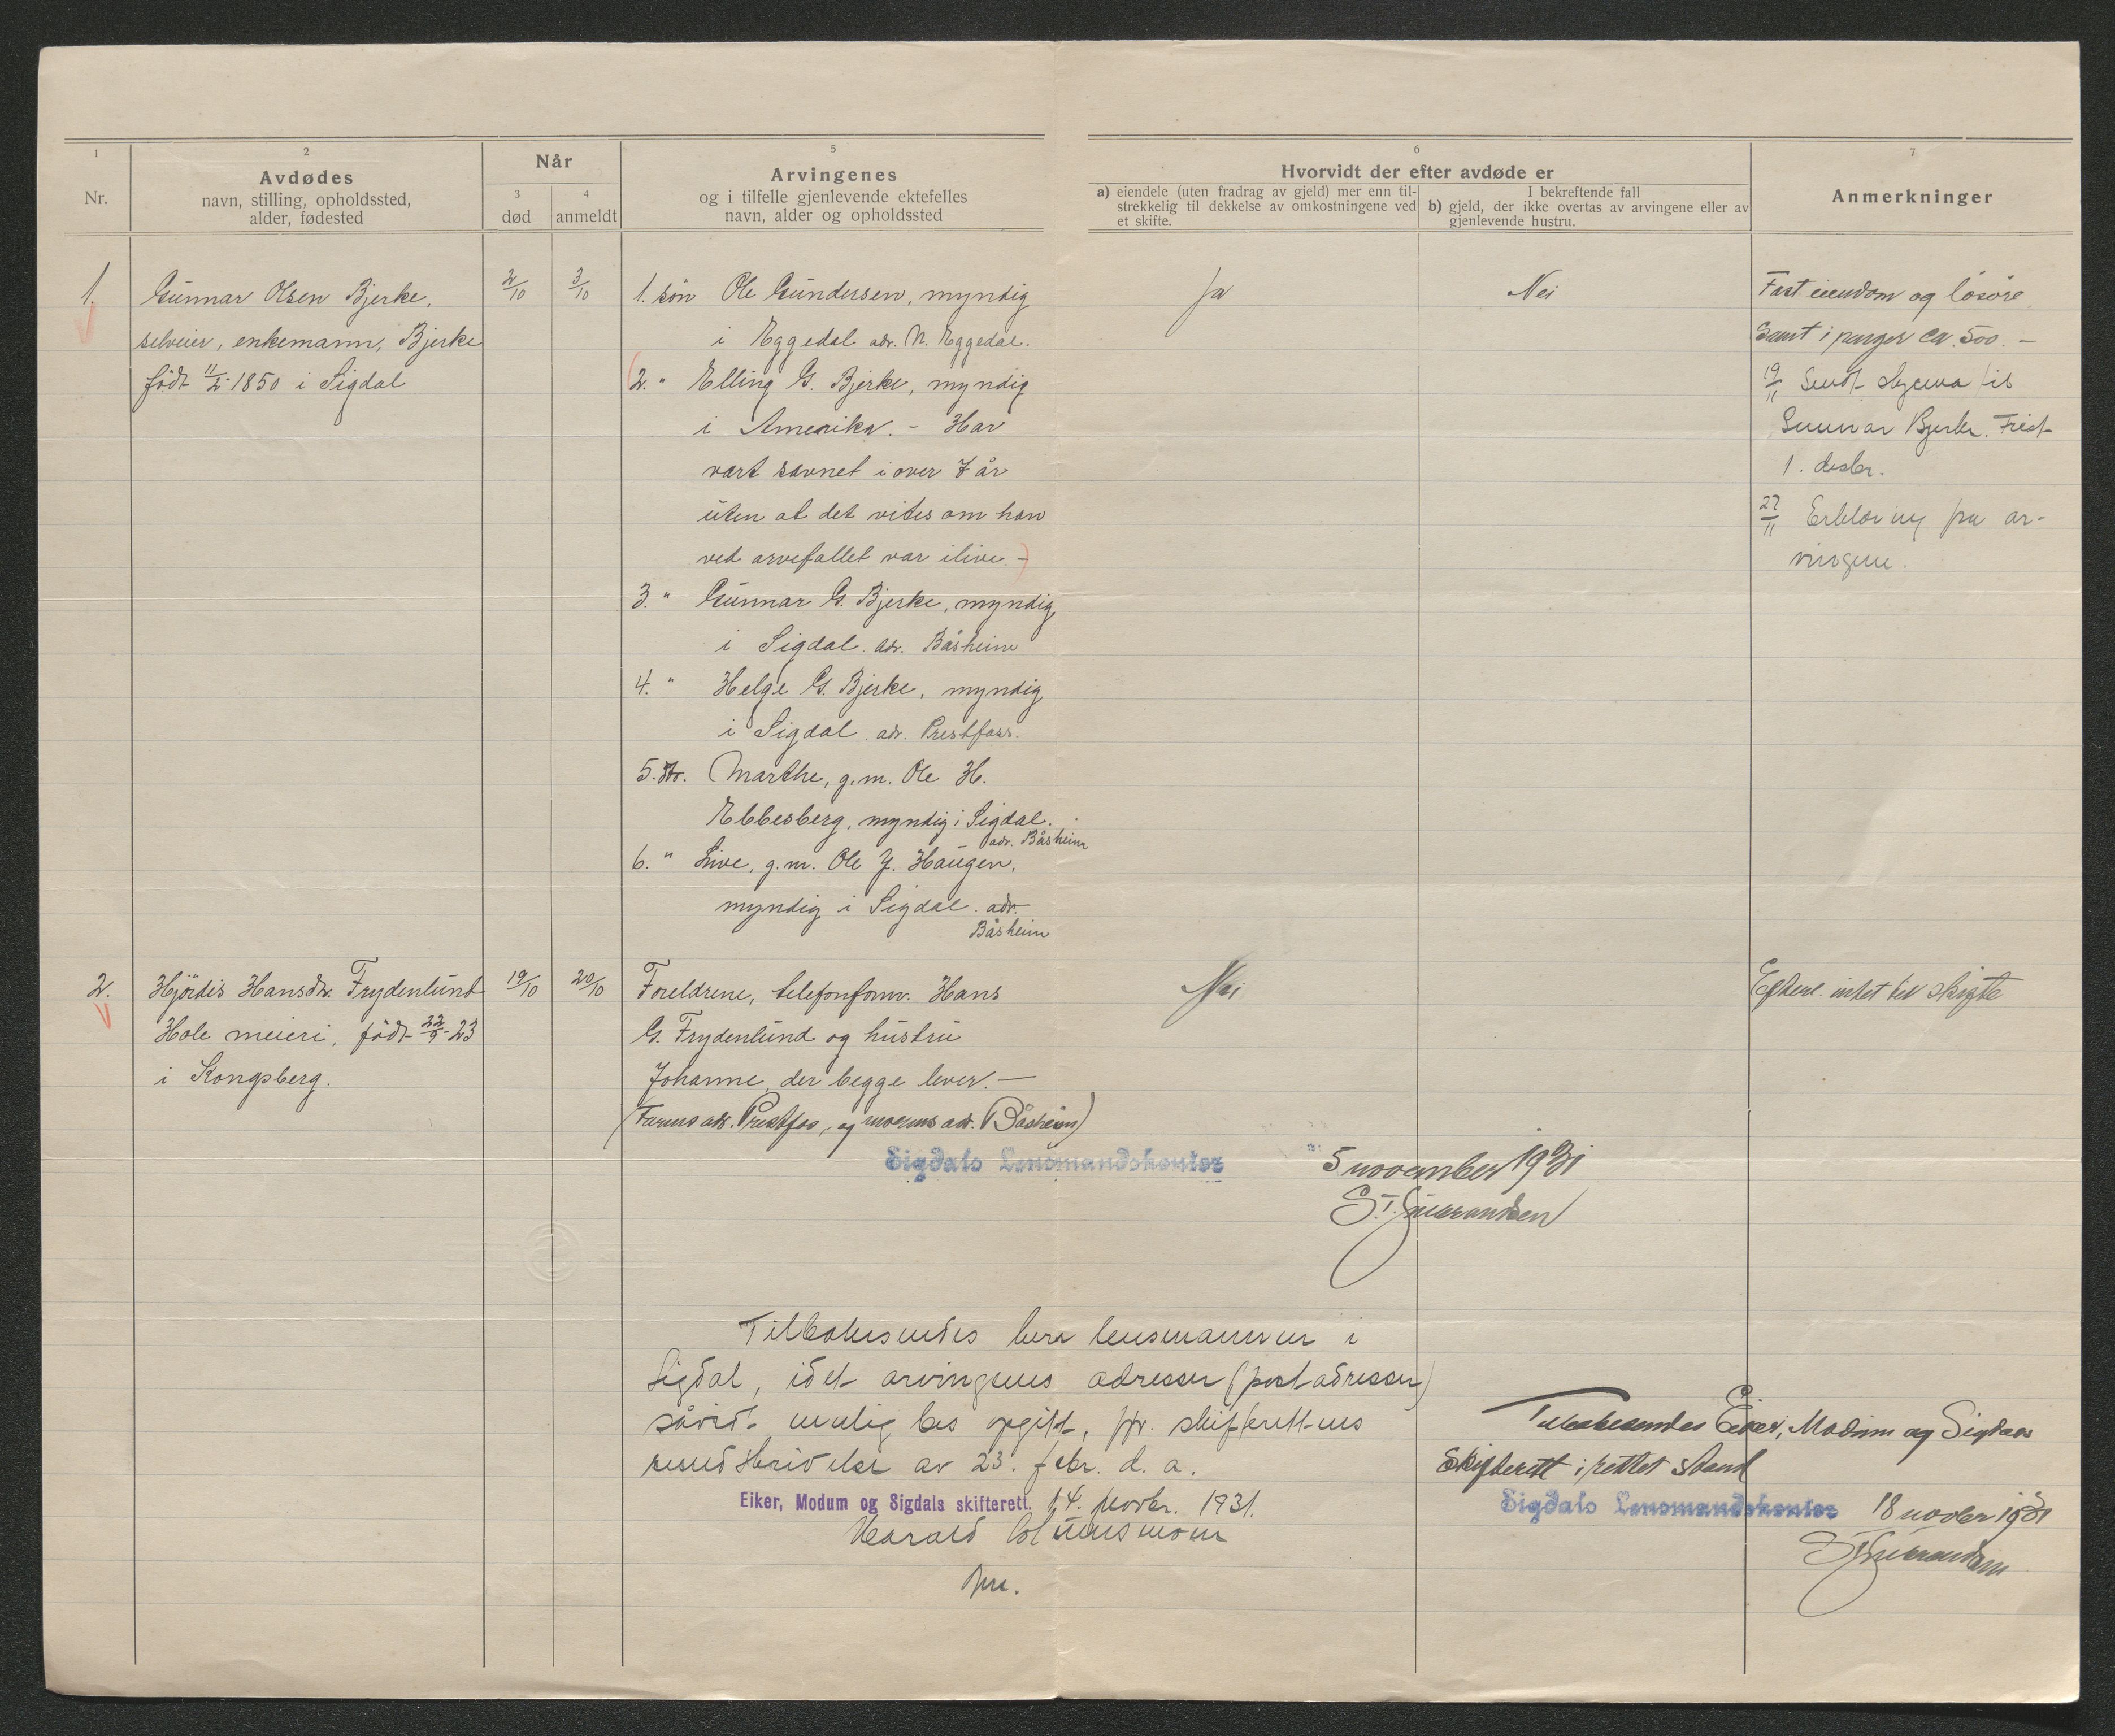 1
Nr.
2
Avdødes
navn, stilling, opholdssted,
alder, fødested
Når
3
død
4
anmeldt
5
Arvingenes
og i tilfelle gjenlevende ektefelles
navn, alder og opholdssted
6
Hvorvidt der efter avdøde er
a) eiendele (uten fradrag av gjeld) mer enn til-
strekkelig til dekkelse av omkostningene ved
et skifte.
I bekreftende fall
b) gjeld, der ikke overtas av arvingene eller av
gjenlevende hustru.
7
Anmerkninger
1.
Gunnar Olsen Bjerke,
selveier, enkemann, Bjerke
født 11/2 1850 i Sigdal
2/10
3/10
1. søn Ole Gundersen, myndig
i Eggedal adr. N. Eggedal.
2. " Elling G. Bjerke, myndig
i Amerika. - Har
vært savnet i over 7 år
uten at det vites om han
ved arvefallet var ilive. -
3. " Gunnar G. Bjerke, myndig
i Sigdal adr. Båsheim
4. " Helge G. Bjerke, myndig
i Sigdal adr. Prestfoss.
5. dtr. Marthe, g.m. Ole H.
Ebbesberg, myndig i Sigdal.
adr. Båsheim
6. " Live, g.m. Ole J. Haugen,
myndig i Sigdal. adr.
Båsheim
Ja
Nei
Fast eiendom og løsøre
samt i penger ca. 500. -
19/11 Sendt skjema til
Gunnar Bjerke. Frist
1. desbr.
27/11 Erklæring fra ar-
vingene.
2.
Hjördis Hansdtr. Frydenlund
Hole meieri, født 22/9-23
i Kongsberg.
19/10
20/10
Foreldrene, telefonform. Hans
G. Frydenlund og hustru
Johanne, der begge lever. -
(Farens adr. Prestfos, og morens adr. Båsheim)
Nei
intet til skifte
Sigdals Lensmandskontor
5 november 1931
Tilbakesendes herr lensmannen i
Sigdal, idet arvingenes adresser (postadresser)
såvidt mulig bes opgitt, jfr. skifterettens
rundskrivelse av 23. febr. d. a.
Eiker, Modum og Sigdals skifterett. 14. novbr. 1931.
Harald
Tilbakesendes Eiker, Modum og Sigdals
Skifterett i rettet stand
Sigdals Lensmandskontor 18 novbr 1931